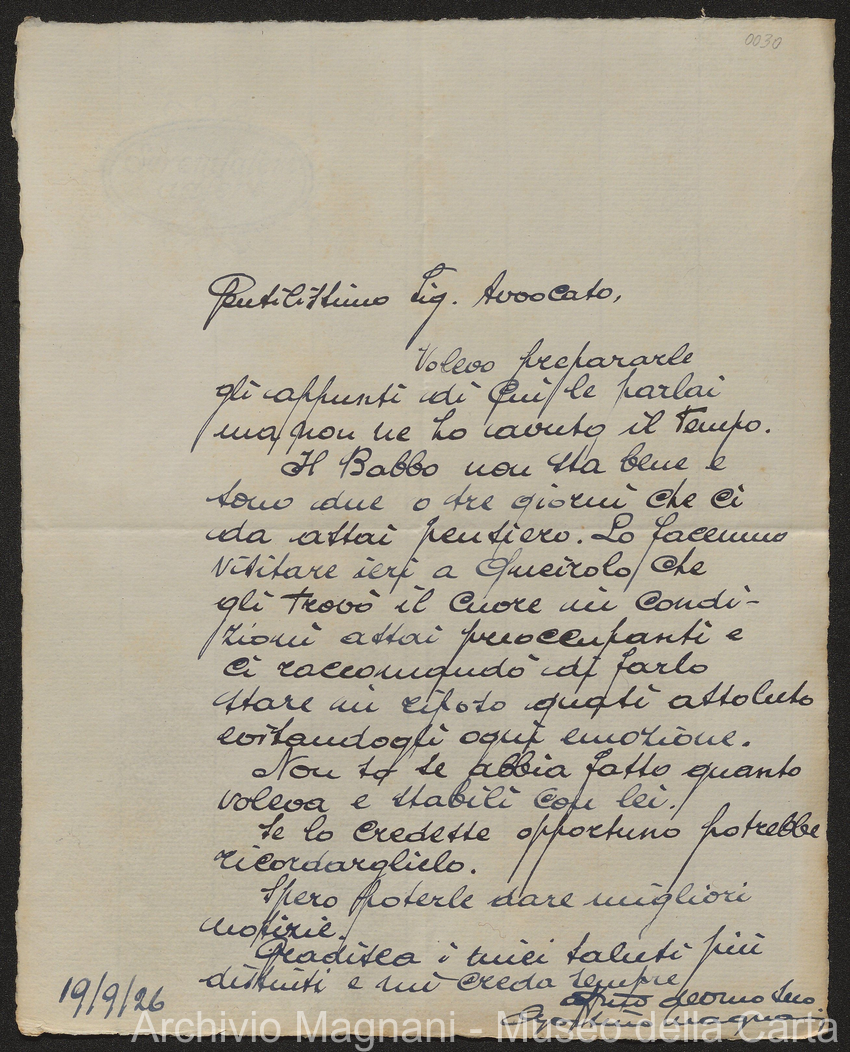 0030
Gentilissimo Sig. Avvocato,
Volevo prepararle
gli appunti di cui le parlai
ma non ne ho avuto il tempo.
Il Babbo non sta bene e
sono due o tre giorni che ci
da assai pensiero. Lo facemmo
visitare ieri a Queirolo che
gli trovò il cuore in condi-
zioni assai preoccupanti e
ci raccomandò di farlo
stare in riposo quasi assoluto
evitandogli ogni emozione.
Non so se abbia fatto quanto
voleva e stabilì con lei.
Se lo credesse opportuno potrebbe
ricordarglielo.
Spero poterle dare migliori
notizie.
Gradisca i miei saluti più
distinti e mi creda sempre
19/9/26
Archivio Magnani - Museo della Carta